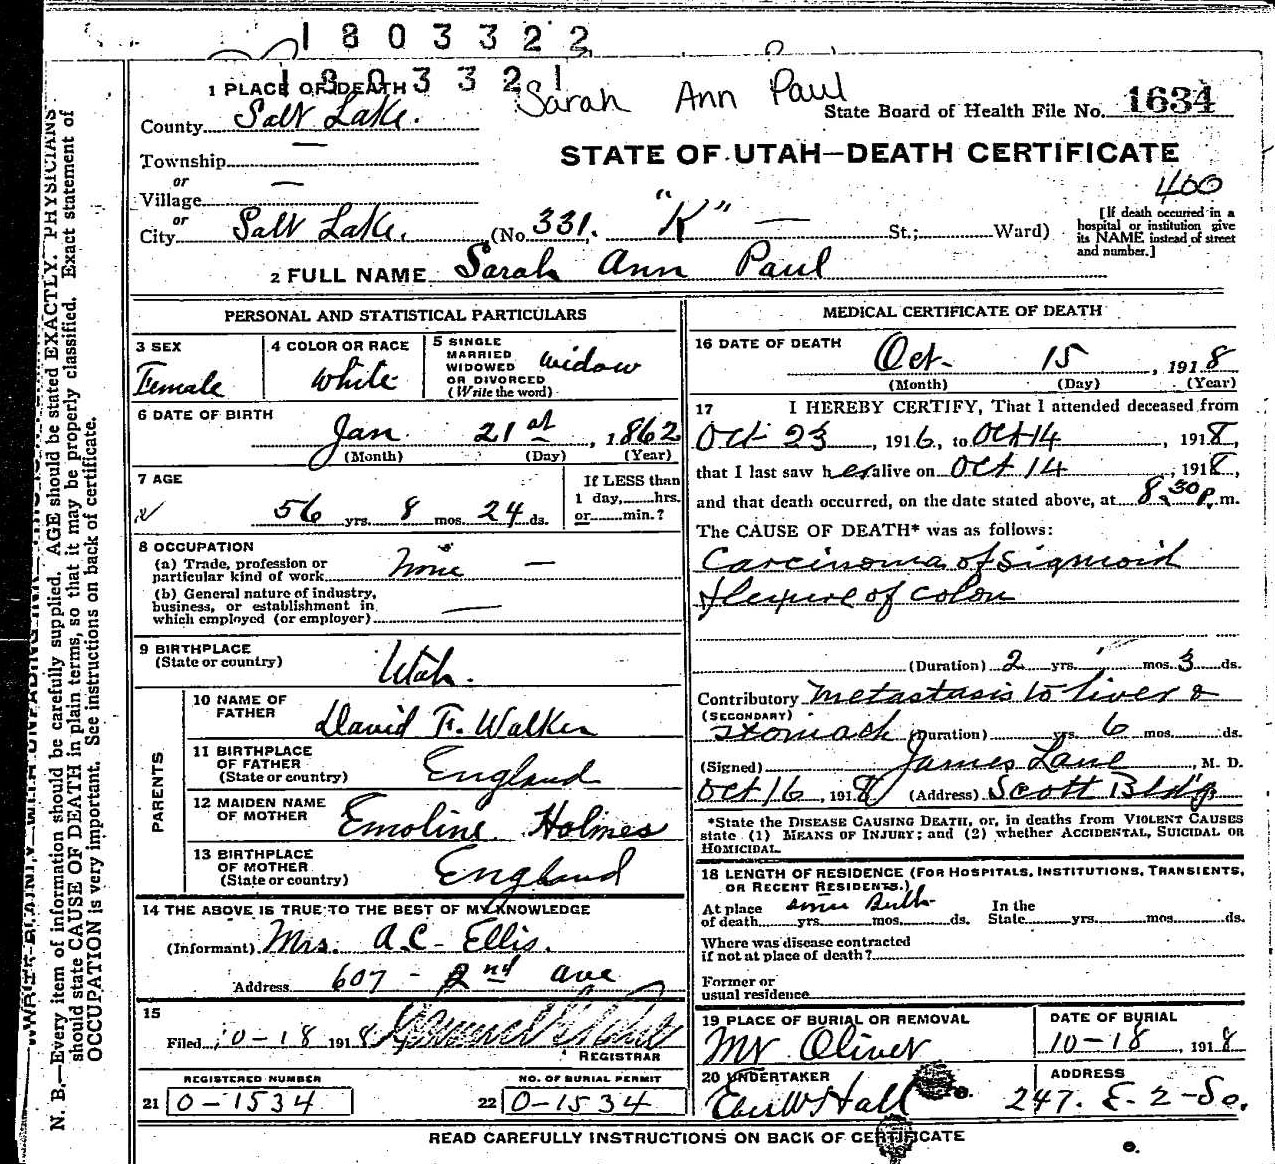 1803322
1803321
1 PLACE OF DEATH
Sarah Ann Paul
State Board of Health File No. 1634
County Salt Lake.
STATE OF UTAH—DEATH CERTIFICATE
Township —
or
Village —
or
City Salt Lake. (No. 331. "K" — St.; Ward)
400
[If death occurred in a hospital or institution give its NAME instead of street and number.]
2 FULL NAME Sarah Ann Paul
PERSONAL AND STATISTICAL PARTICULARS
3 SEX
Female
4 COLOR OR RACE
White
5 SINGLE
MARRIED
WIDOWED
OR DIVORCED
(Write the word)
Widow
6 DATE OF BIRTH
Jan 21st, 1862
(Month) (Day) (Year)
7 AGE
56 yrs. 8 mos. 24 ds.
If LESS than
1 day, hrs.
or min.?
8 OCCUPATION
(a) Trade, profession or
particular kind of work None —
(b) General nature of industry,
business, or establishment in
which employed (or employer) —
9 BIRTHPLACE
(State or country)
Utah.
PARENTS
10 NAME OF
FATHER
David F. Walker
11 BIRTHPLACE
OF FATHER
(State or country)
England
12 MAIDEN NAME
OF MOTHER
Emoline Holmes
13 BIRTHPLACE
OF MOTHER
(State or country)
England
14 THE ABOVE IS TRUE TO THE BEST OF MY KNOWLEDGE
(Informant) Mrs. A.C. Ellis.
Address 607 - 2nd ave
15
Filed 10-18 1918
REGISTRAR
REGISTERED NUMBER
21 0-1534
NO. OF BURIAL PERMIT
22 0-1534
MEDICAL CERTIFICATE OF DEATH
16 DATE OF DEATH
Oct. 15, 1918
(Month) (Day) (Year)
17 I HEREBY CERTIFY, That I attended deceased from
Oct 23, 1916, to Oct 14, 1918,
that I last saw her alive on Oct 14, 1918,
and that death occurred, on the date stated above, at 8:30 P. m.
The CAUSE OF DEATH* was as follows:
Carcinoma of Sigmoid
flexure of colon
(Duration) 2 yrs. mos. 3 ds.
Contributory metastasis to liver &
(SECONDARY)
stomach (Duration) yrs. 6 mos. ds.
(Signed) James Lane, M. D.
Oct 16, 1918 (Address) Scott Bldg
*State the DISEASE CAUSING DEATH, or, in deaths from VIOLENT CAUSES
state (1) MEANS OF INJURY; and (2) whether ACCIDENTAL, SUICIDAL OR
HOMICIDAL.
18 LENGTH OF RESIDENCE (FOR HOSPITALS, INSTITUTIONS, TRANSIENTS,
OR RECENT RESIDENTS.)
At place since Birth In the
of death yrs. mos. ds. State yrs. mos. ds.
Where was disease contracted
if not at place of death?
Former or
usual residence
19 PLACE OF BURIAL OR REMOVAL
Mt Olivet
DATE OF BURIAL
10-18, 1918
20 UNDERTAKER
Eber W Hall
ADDRESS
247. E. 2-So.
READ CAREFULLY INSTRUCTIONS ON BACK OF CERTIFICATE
N. B.—Every item of information should be carefully supplied. AGE should be stated EXACTLY. PHYSICIANS
should state CAUSE OF DEATH in plain terms, so that it may be properly classified. Exact statement of
OCCUPATION is very important. See instructions on back of certificate.